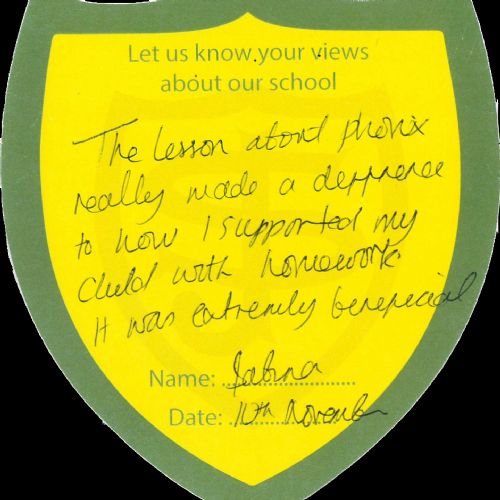 Let us know your views
about our school
The lesson about phonix
really made a depprence
to how I supported my
child with homework.
It was extremly benepicial
Name: Sabina
Date: 10th November